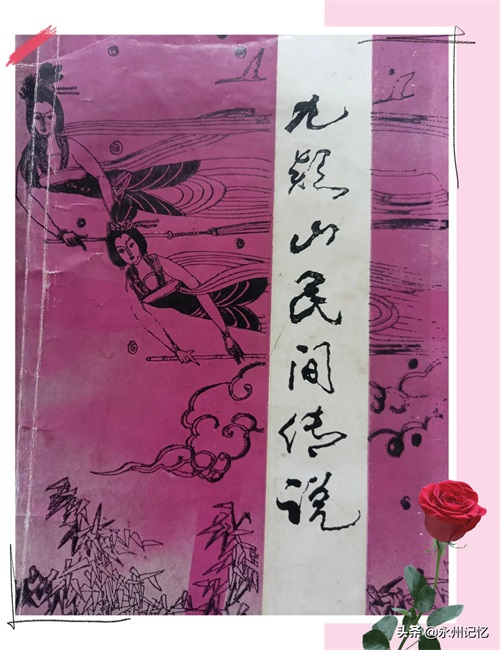 九疑山民间传说
头条 @永州记忆